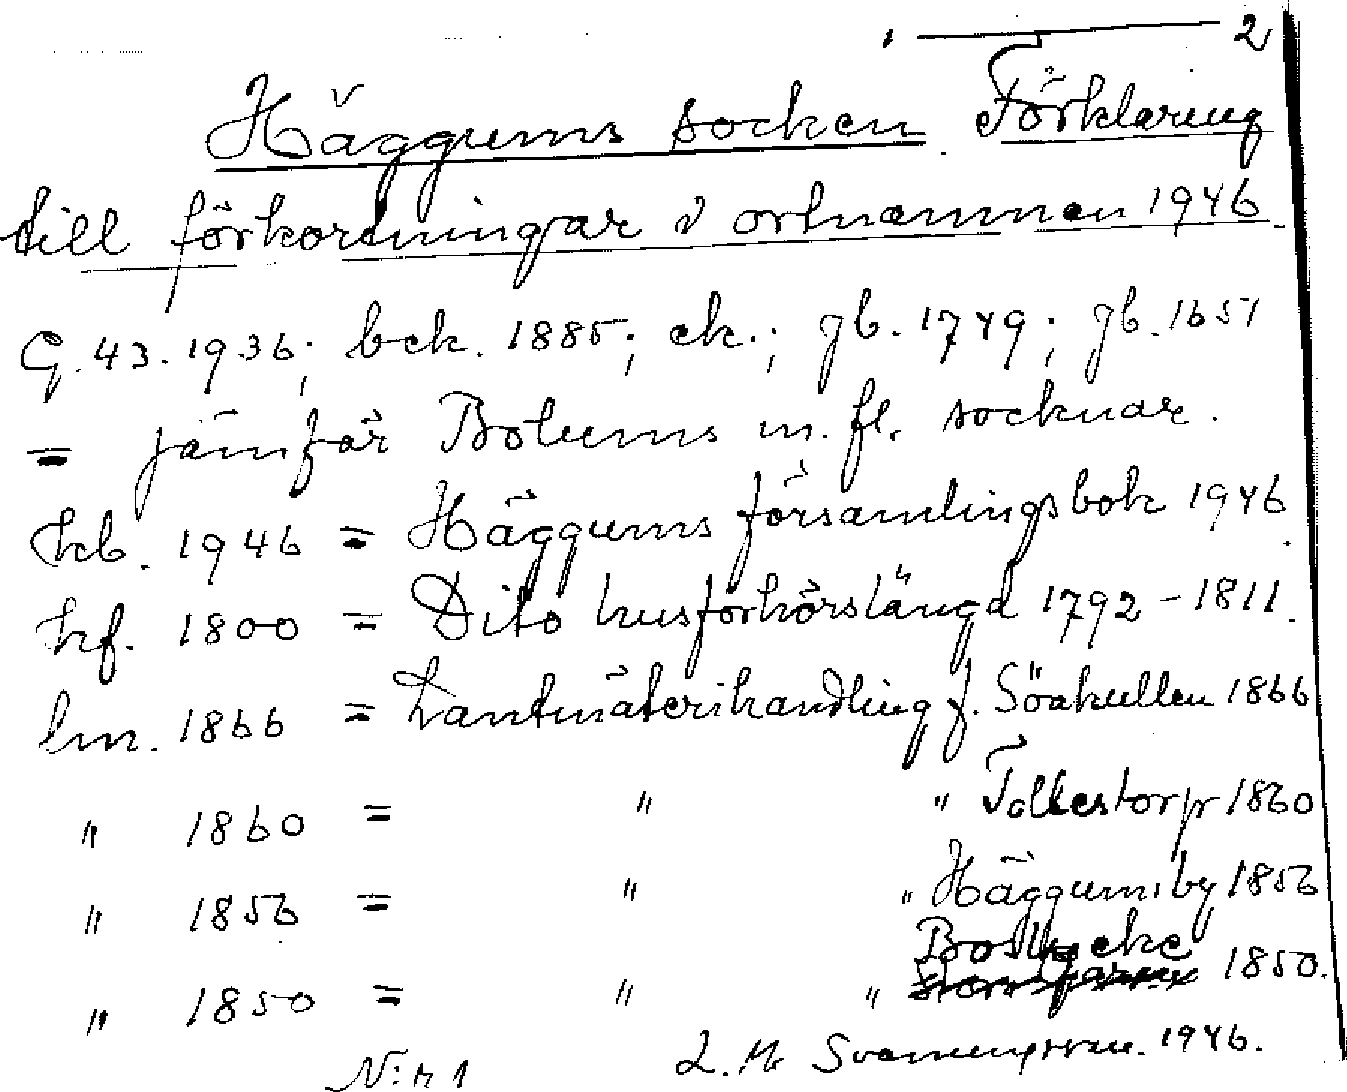 2
Häggums socken. Förklaring
till förkortningar i ortnamnen 1946.
G. 43. 1936; bek. 1885; ek.; jb. 1749; jb. 1651
= jämför Bolums m. fl. socknar.
kb. 1946 = Häggums församlingsbok 1946.
hf. 1800 = Dito husförhörslängd 1792-1811.
lm. 1866 = Lantmäterihandling f. Sörkullen 1866
" 1860 = " " Tollestorp 1860
" 1856 = " " Häggums by 1856
" 1850 = " " Boslycke 1850.
N:r 1
1946.